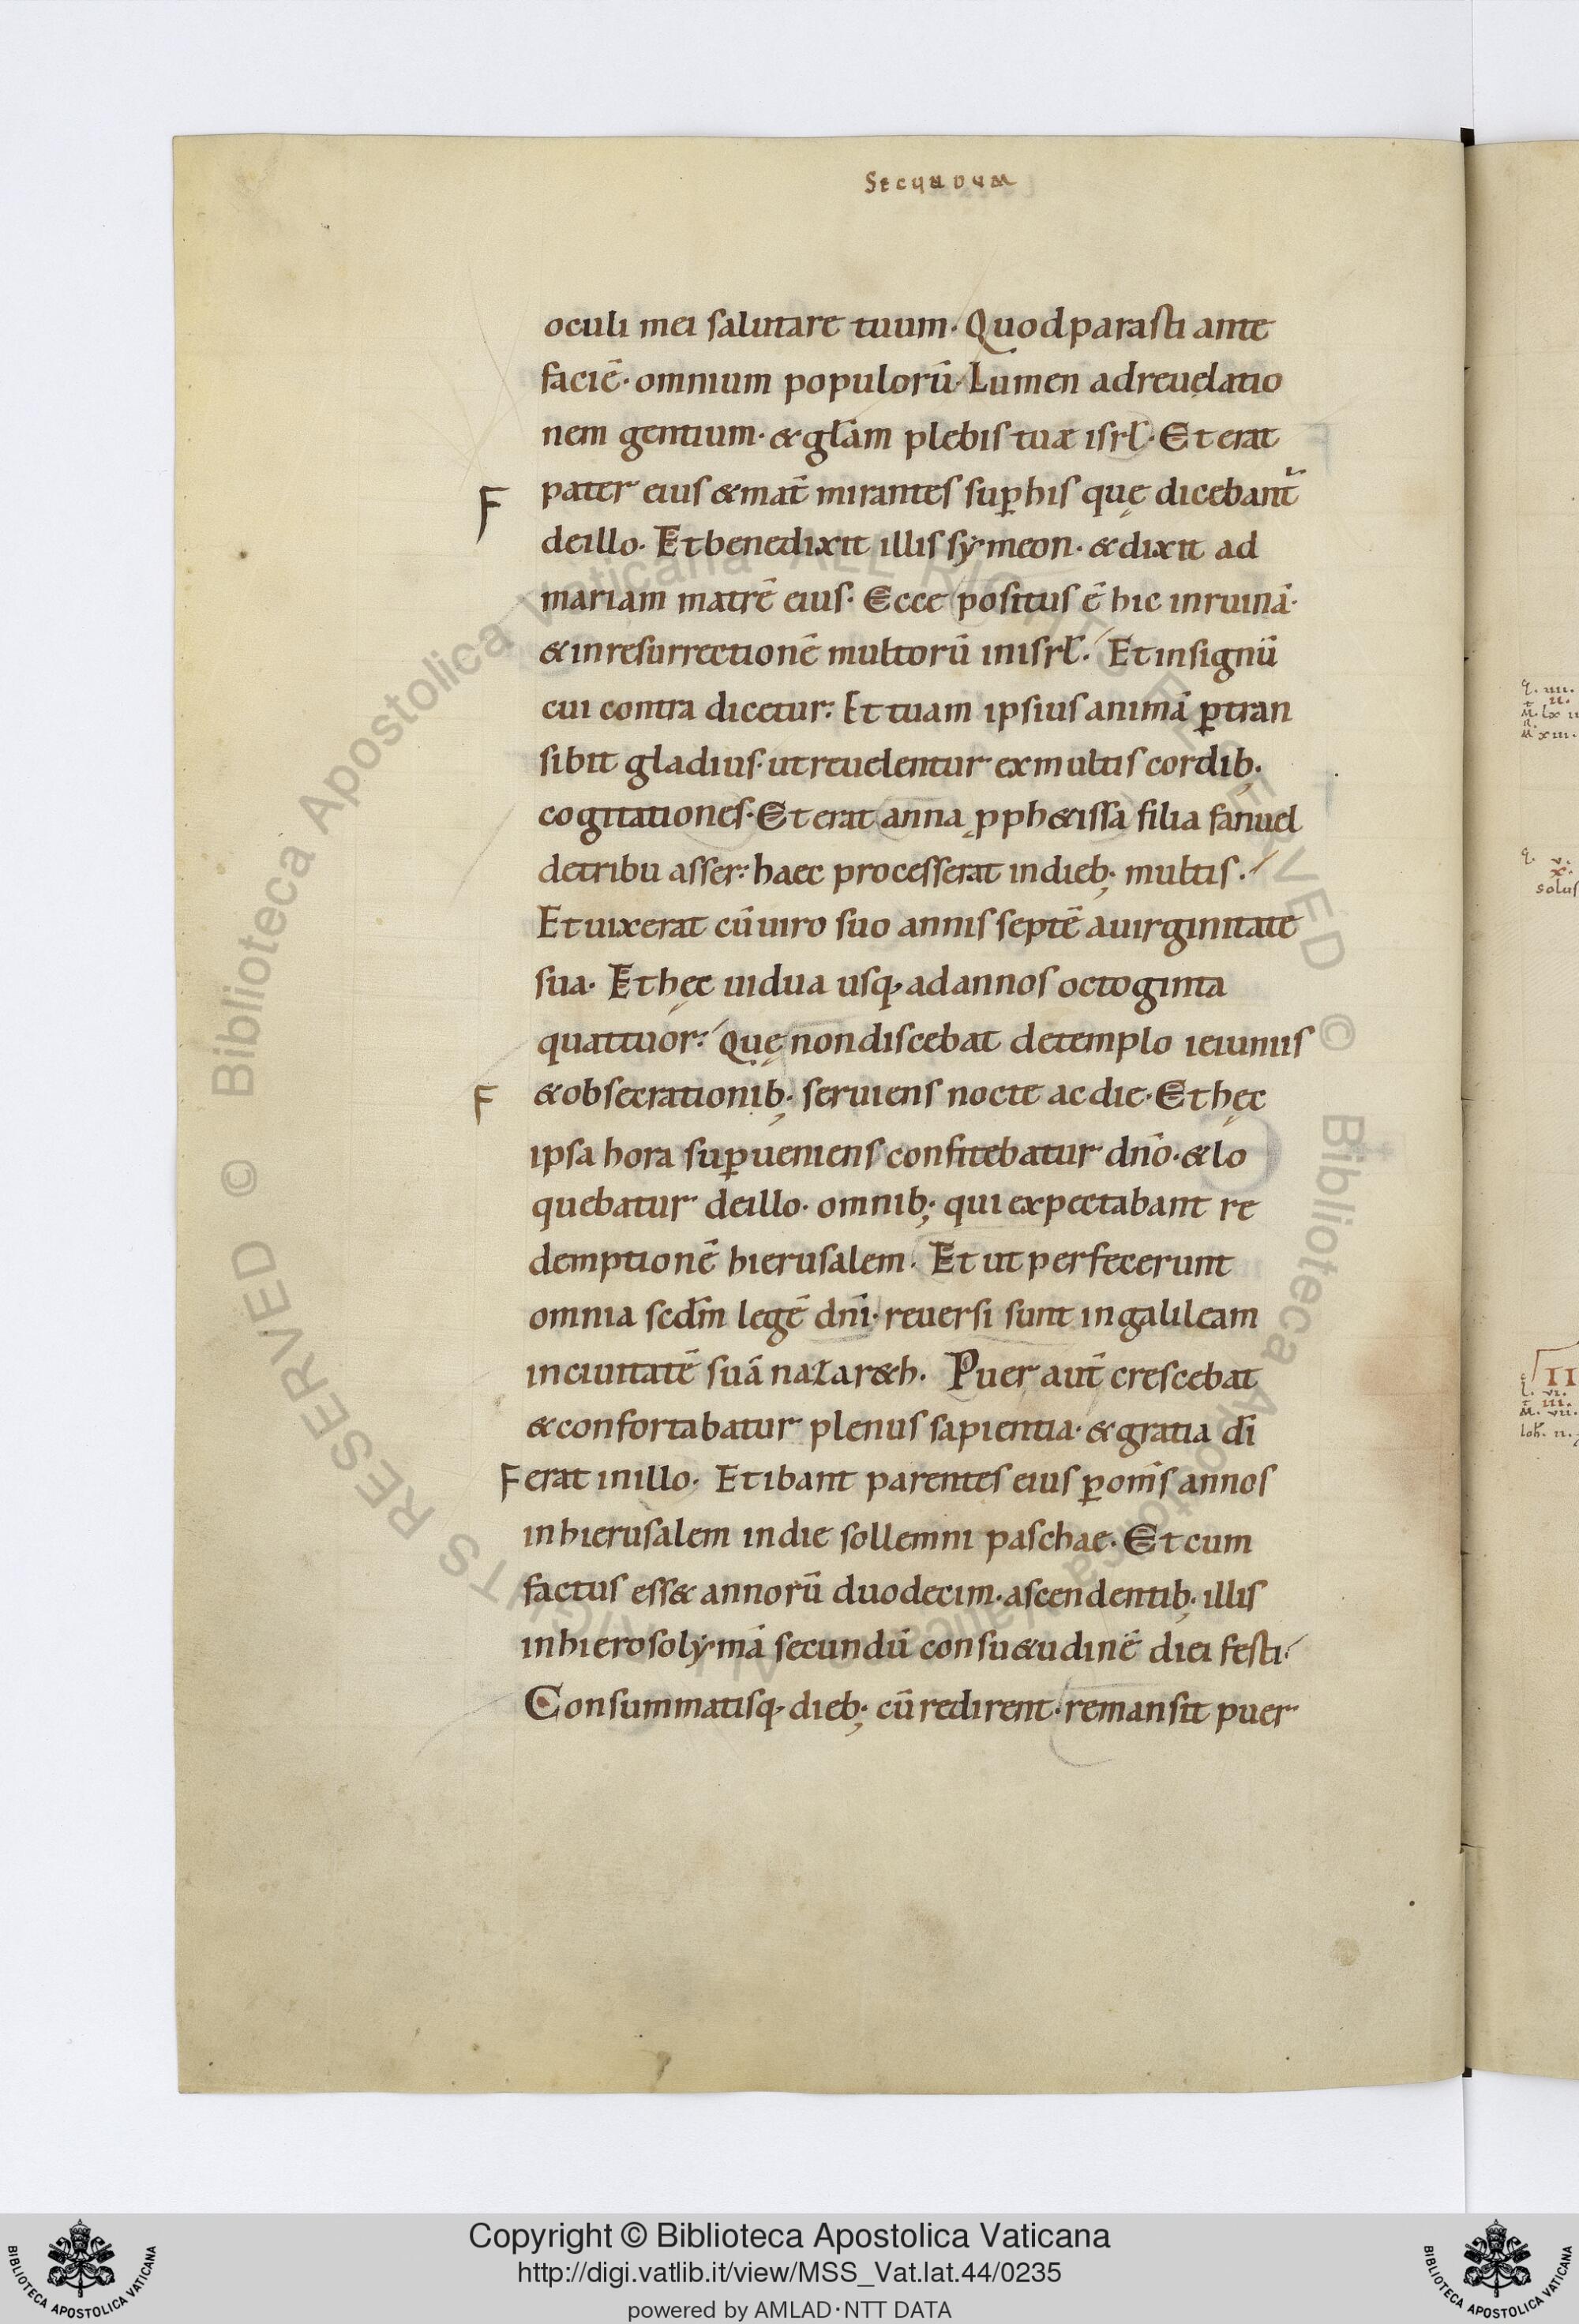 Secundum
oculi mei salutare tuum. Quod parasti ante
faciē. omnium populorū. Lumen ad reuelatio
nem gentium. & głam plebis tuæ isrł. Et erat
F pater eius & mat̄ mirantes sup̱ his quę dicebant᷑
de illo. Et benedixit illis sẏmeon. & dixit ad
mariam matrē eius. Ecce positus ē hic in ruinā.
& in resurrectionē multorū in isrł. Et in signū
cui contra dicetur: Et tuam ipsius animā p̱tran
sibit gladius. ut reuelentur ex multis cordib;
cogitationes. Et erat anna p̱ph&issa filia fanuel
de tribu asser: haec processerat in dieb; multis.
Et uixerat cū uiro suo annis septē a uirginitate
sua. Et hęc uidua usq, ad annos octoginta
quattuor: Quę non discebat de templo ieiuniis
F & obsecrationib; seruiens nocte ac die. Et hęc
ipsa hora sup̱ueniens confitebatur dn̄o. & lo
quebatur de illo. omnib; qui expectabant re
demptionē hierusalem. Et ut perfecerunt
omnia scdm̄ legē dn̄i. reuersi sunt in galileam
in ciuitatē suā nazar&h. Puer aut̄ crescebat
& confortabatur plenus sapientia. & gratia dī
F erat in illo. Et ibant parentes eius p̱ om̄s annos
in hierusalem in die sollemni paschae. Et cum
factus ess& annorū duodecim. ascendentib; illis
in hierosolẏmā secundū consu&udinē diei festi.
Consummatisq, dieb; cū redirent. remansit puer
q. iiii.
solus
II
Copyright © Biblioteca Apostolica Vaticana
http://digi.vatlib.it/view/MSS_Vat.lat.44/0235
powered by AMLAD·NTT DATA
BIBLIOTECA APOSTOLICA VATICANA
BIBLIOTECA APOSTOLICA VATICANA
© Biblioteca Apostolica Vaticana ALL RIGHTS RESERVED © Biblioteca Apostolica Vaticana ALL RIGHTS RESERVED